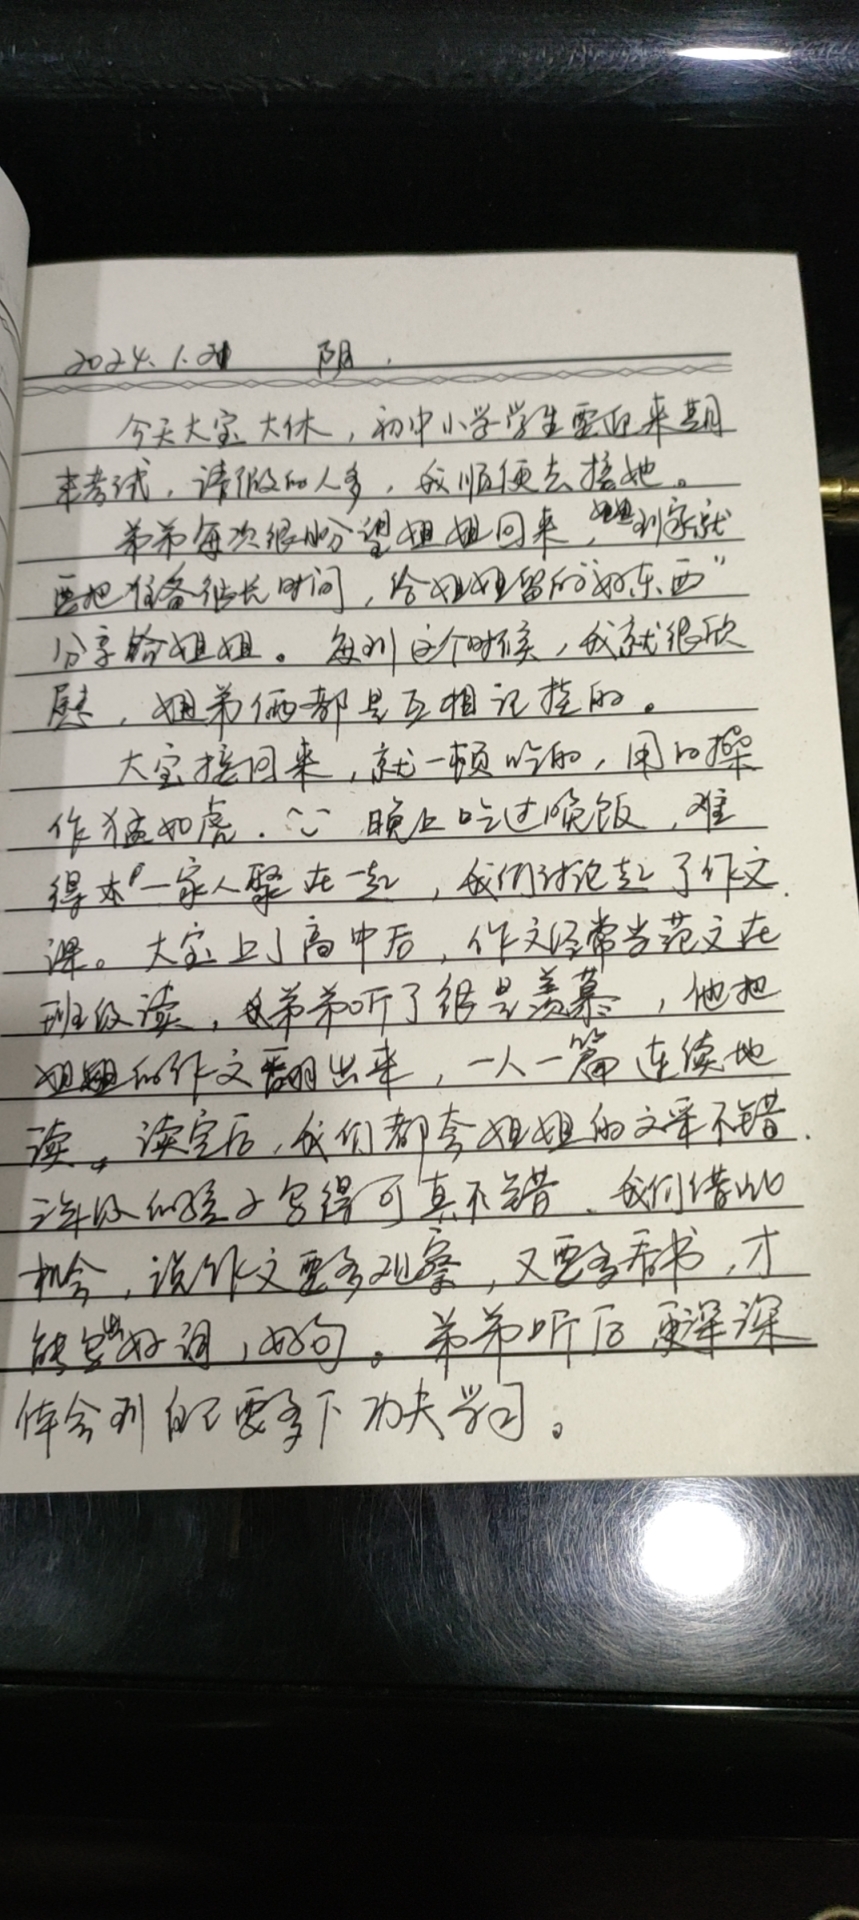 2024.1.21 阴.
今天大宝大休，初中小学学生要迎来期
末考试，请假的人多，我顺便去接她。
弟弟每次很盼望姐姐回来，姐姐到家就
要把准备很长时间，给姐姐留的"好东西"
分享给姐姐。每到这个时候，我就很欣
慰，姐弟俩都是互相记挂的。
大宝接回来，就一顿吃的，用的操
作猛如虎. 晚上吃过晚饭，难
得一家人聚在一起，我们讨论起了作文
课。大宝上了高中后，作文经常当范文在
班级读，弟弟听了很是羡慕，他把
姐姐的作文翻出来，一人一篇连续地
读。读完后，我们都夸姐姐的文采不错.
年级的孩子写得可真不错.我们借此
机会，说作文要多观察，又要多看书，才
能写出好词，好句。弟弟听后更深深
体会到自己要多下功夫学习。